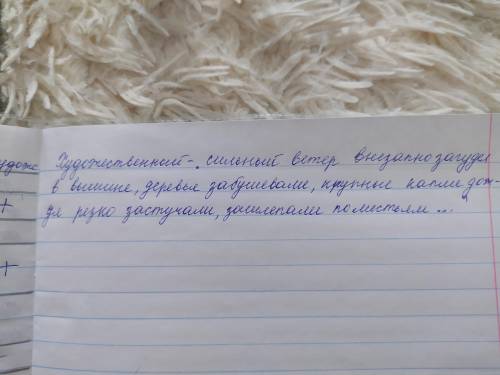 Художественный - сильный ветер внезапно загудел
в вышине, деревья забушевали, крупные капли дож-
дя резко застучали, зашлепали по листьям ...